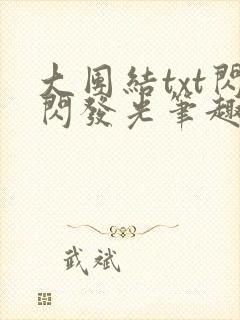 大團結txt閃
閃發光筆趣
武斌